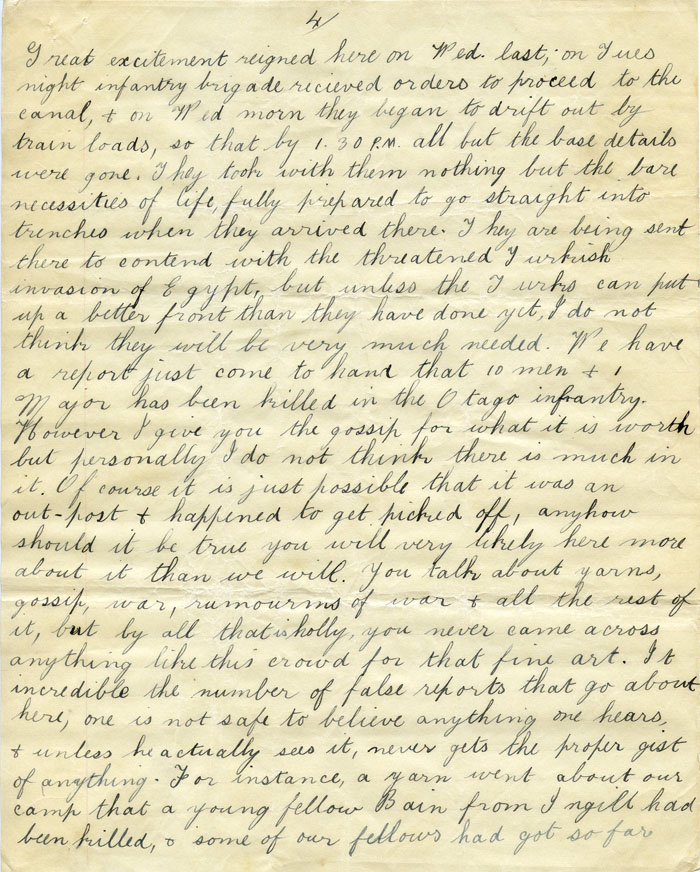 4/
Great excitement reigned here on Wed. last; on Tues
night infantry brigade recieved orders to proceed to the
canal, & on Wed morn they began to drift out by
train loads, so that by 1.30 P.M. all but the base details
were gone. They took with them nothing but the bare
necessities of life, fully prepared to go straight into
trenches when they arrived there. They are being sent
there to contend with the threatened Turkish
invasion of Egypt, but unless the Turks can put
up a better front than they have done yet, I do not
think they will be very much needed. We have
a report just come to hand that 10 men & 1
Major has been killed in the Otago infantry.
However I give you the gossip for what it is worth
but personally I do not think there is much in
it. Of course it is just possible that it was an
out-post & happened to get picked off, anyhow
should it be true you will very likely here more
about it than we will. You talk about yarns,
gossip, war, rumourms of war & all the rest of
it, but by all that is holly, you never came across
anything like this crowd for that fine art. It
incredible the number of false reports that go about
here, one is not safe to believe anything one hears,
& unless he actually sees it, never gets the proper gist
of anything. For instance, a yarn went about our
camp that a young fellow Bain from Ingill had
been killed, & some of our fellows had got so far